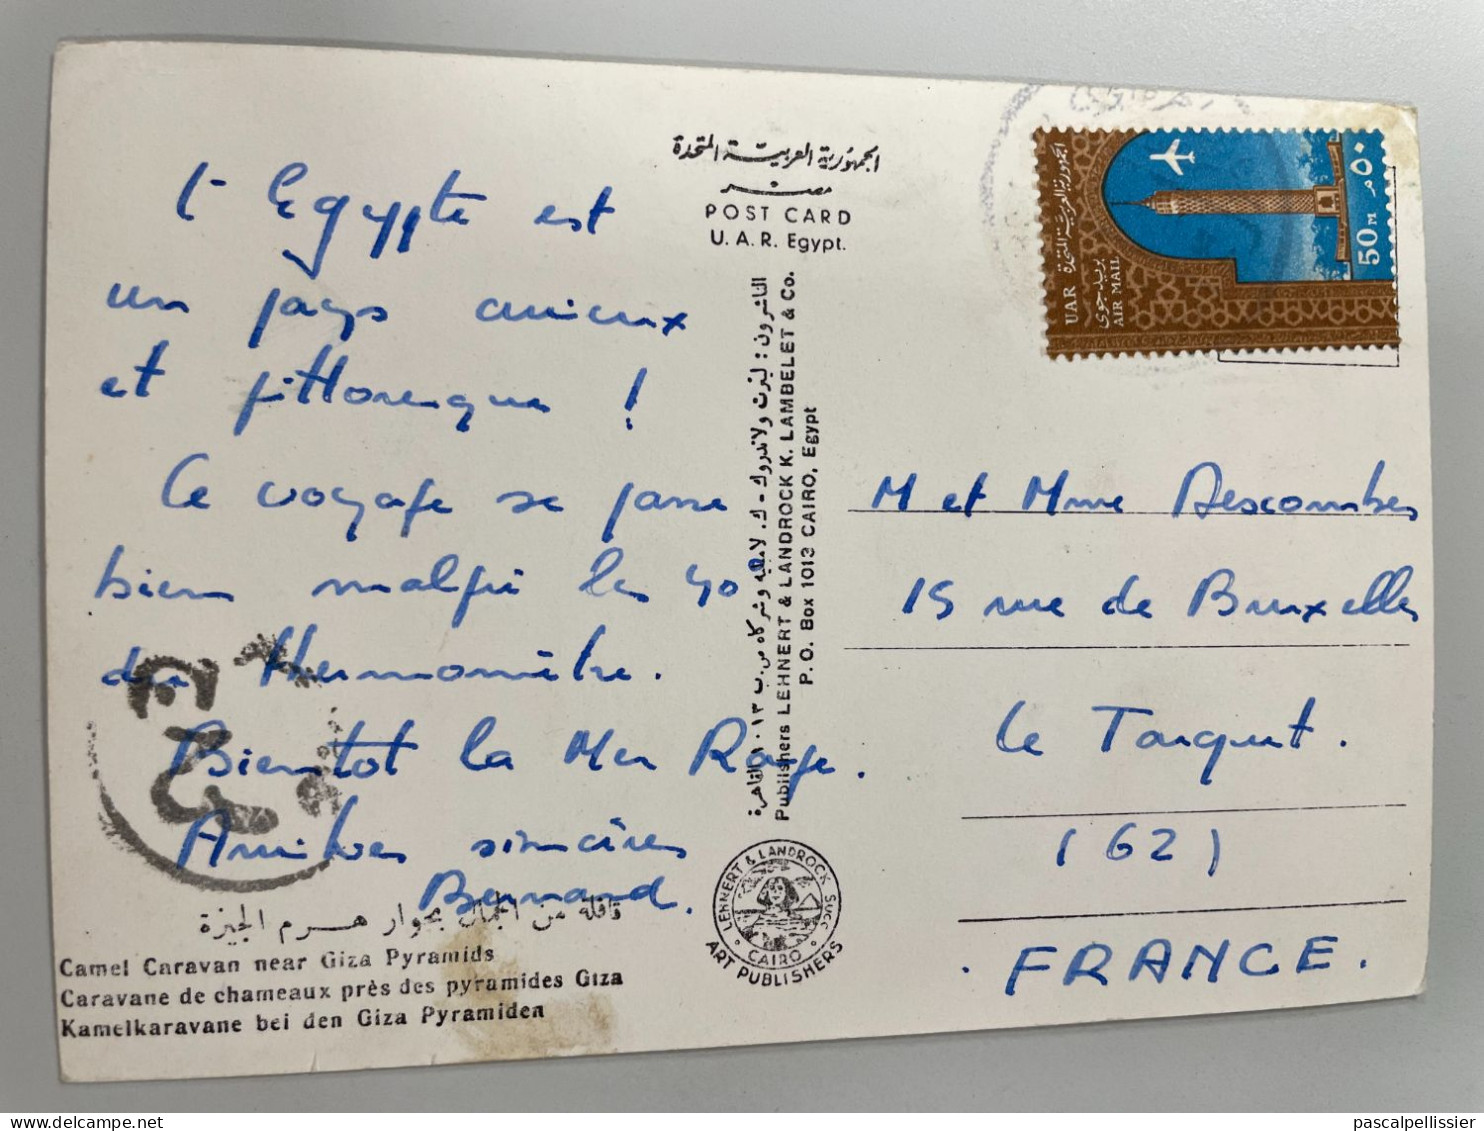 L'Egypte est
un pays curieux
et pittoresque !
Le voyage se passe
bien malgré les 40°
du thermomètre.
Bientôt la Mer Rouge.
Amitiés sincères
Bernard.
قافلة من الجمال بجوار هرم الجيزة
Camel Caravan near Giza Pyramids
Caravane de chameaux près des pyramides Giza
Kamelkaravane bei den Giza Pyramiden
الجمهورية العربية المتحدة
مصر
POST CARD
U. A. R. Egypt.
الناشرون : لينرت ولاندروك - ك. لامبليه وشركاه ص. ب ١٠١٣ القاهرة
Publishers LEHNERT & LANDROCK K. LAMBELET & Co.
P. O. Box 1013 CAIRO, Egypt
LEHNERT & LANDROCK SUCC
CAIRO
ART PUBLISHERS
UAR الجمهورية العربية المتحدة
AIR MAIL بريد جوى
50 M ٥٠ م
M et Mme Descombes
15 rue de Bruxelles
Le Touquet.
(62)
FRANCE.
pascalpellissier